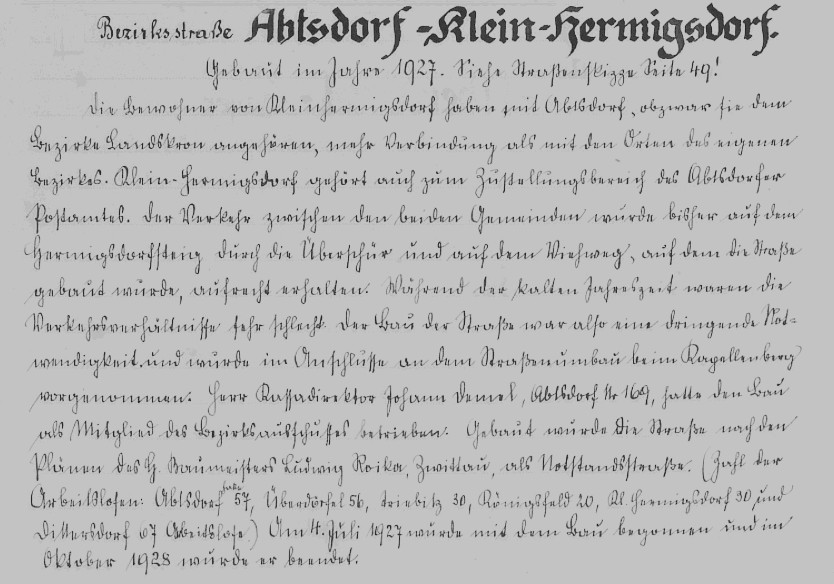 Bezirksstraße Abtsdorf-Klein-Hermigsdorf.
Gebaut im Jahre 1927. Siehe Straßenskizze Seite 49!
Die Bewohner von Kleinhermigsdorf haben mit Abtsdorf, obzwar sie dem
Bezirke Landskron angehören, mehr Verbindung als mit den Orten des eigenen
Bezirkes. Klein-Hermigsdorf gehört auch zum Zustellungsbereich des Abtsdorfer
Postamtes. Der Verkehr zwischen den beiden Gemeinden wurde bisher auf dem
Hermigsdorfsteig durch die Überschür und auf dem Viehweg, auf dem die Straße
gebaut wurde, aufrecht erhalten. Während der kalten Jahreszeit waren die
Verkehrsverhältnisse sehr schlecht. Der Bau der Straße war also eine dringende Not-
wendigkeit und wurde im Anschlusse an dem Straßenumbau beim Kapellenberg
vorgenommen. Herr Kassadirektor Johann Demel, Abtsdorf Nr 169, hatte den Bau
als Mitglied des Bezirksausschusses betrieben. Gebaut wurde die Straße nach den
Plänen des H. Baumeisters Ludwig Roika, Zwittau, als Notstandsstraße. (Zahl der
Arbeitslosen: Abtsdorf 57, Überdörfel 56, Triebitz 30, Königsfeld 20, Kl. Hermigsdorf 30 und
Dittersdorf 67 Arbeitslose) Am 4. Juli 1927 wurde mit dem Bau begonnen und im
Oktober 1928 wurde er beendet.